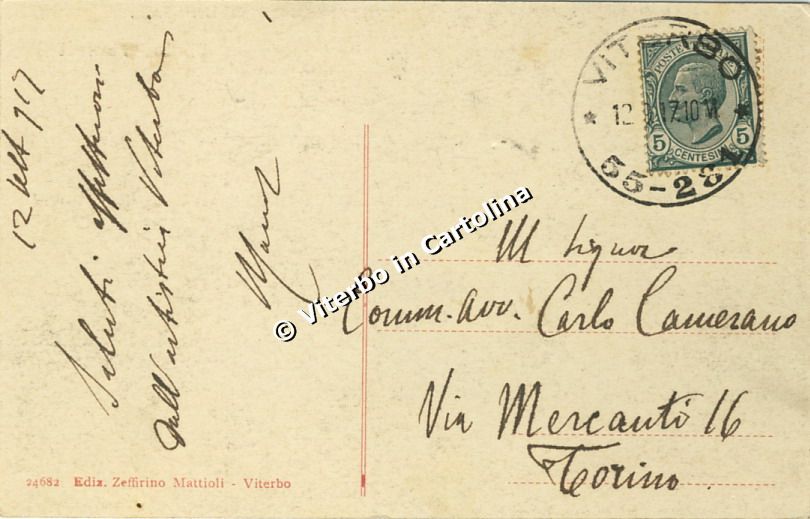 12 sett 917
Saluti affettuosi
dall'artistica Viterbo
Ill Signor
Comm. Avv. Carlo Camerano
Via Mercanti 16
Torino
VITERBO
12. 17.10
55-284
POSTE
5 5
CENTESIMI
© Viterbo in Cartolina
24682 Ediz. Zeffirino Mattioli - Viterbo